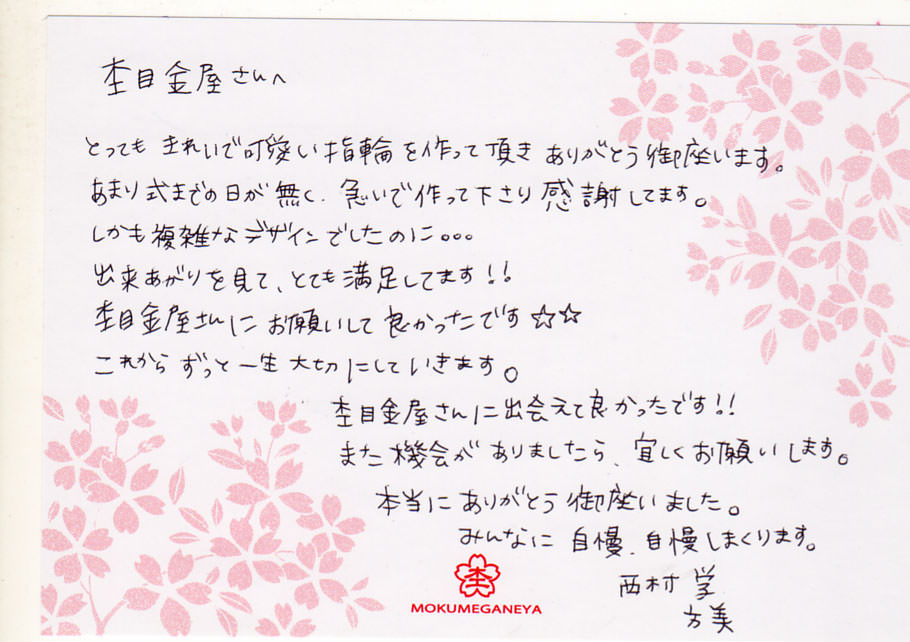 杢目金屋さんへ
とっても きれいで可愛い指輪を作って頂き ありがとう御座います。
あまり式までの日が無く、急いで作って下さり感謝してます。
しかも複雑なデザインでしたのに。。。
出来あがりを見て、とても満足してます!!
杢目金屋さんにお願いして良かったです☆☆
これから ずっと一生大切にしていきます。
杢目金屋さんに出会えて良かったです!!
また機会がありましたら、宜しくお願いします。
本当にありがとう御座いました。
みんなに自慢、自慢しまくります。
西村 学
方美
杢
MOKUMEGANEYA